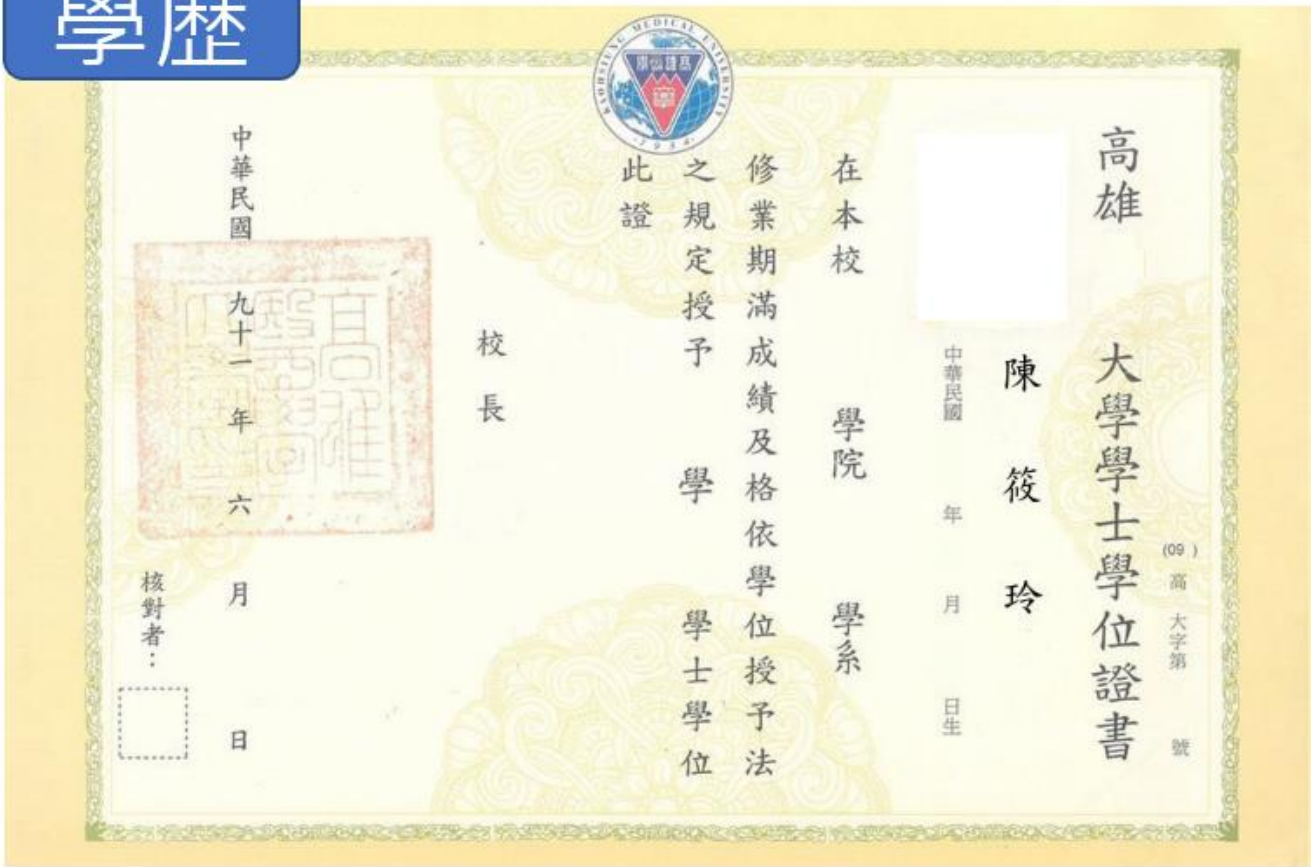 學歷
KAOHSIUNG MEDICAL UNIVERSITY
1954
(09 ) 高 大字第 號
高雄 大學學士學位證書
陳筱玲
中華民國 年 月 日生
在本校 學院 學系
修業期滿成績及格依學位授予法
之規定授予 學 學士學位
此證
校長
中華民國 九十一 年 六 月 日
核對者：